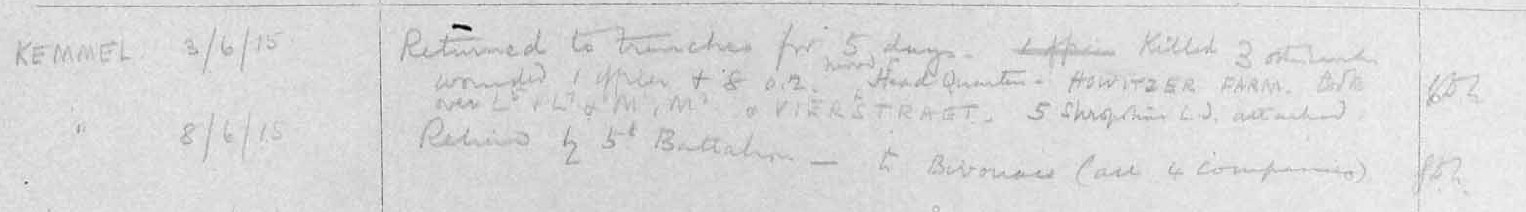 KEMMEL 3/6/15 Returned to trenches for 5 days. Killed 3 other ranks
wounded 1 officer + 8 o.r. Moved Head Quarters HOWITZER FARM. Took
over & VIERSTRAAT. 5 Shropshire L.I. attached
" 8/6/15 Relieved by 5th Battalion — to Bivouacs (all 4 companies)